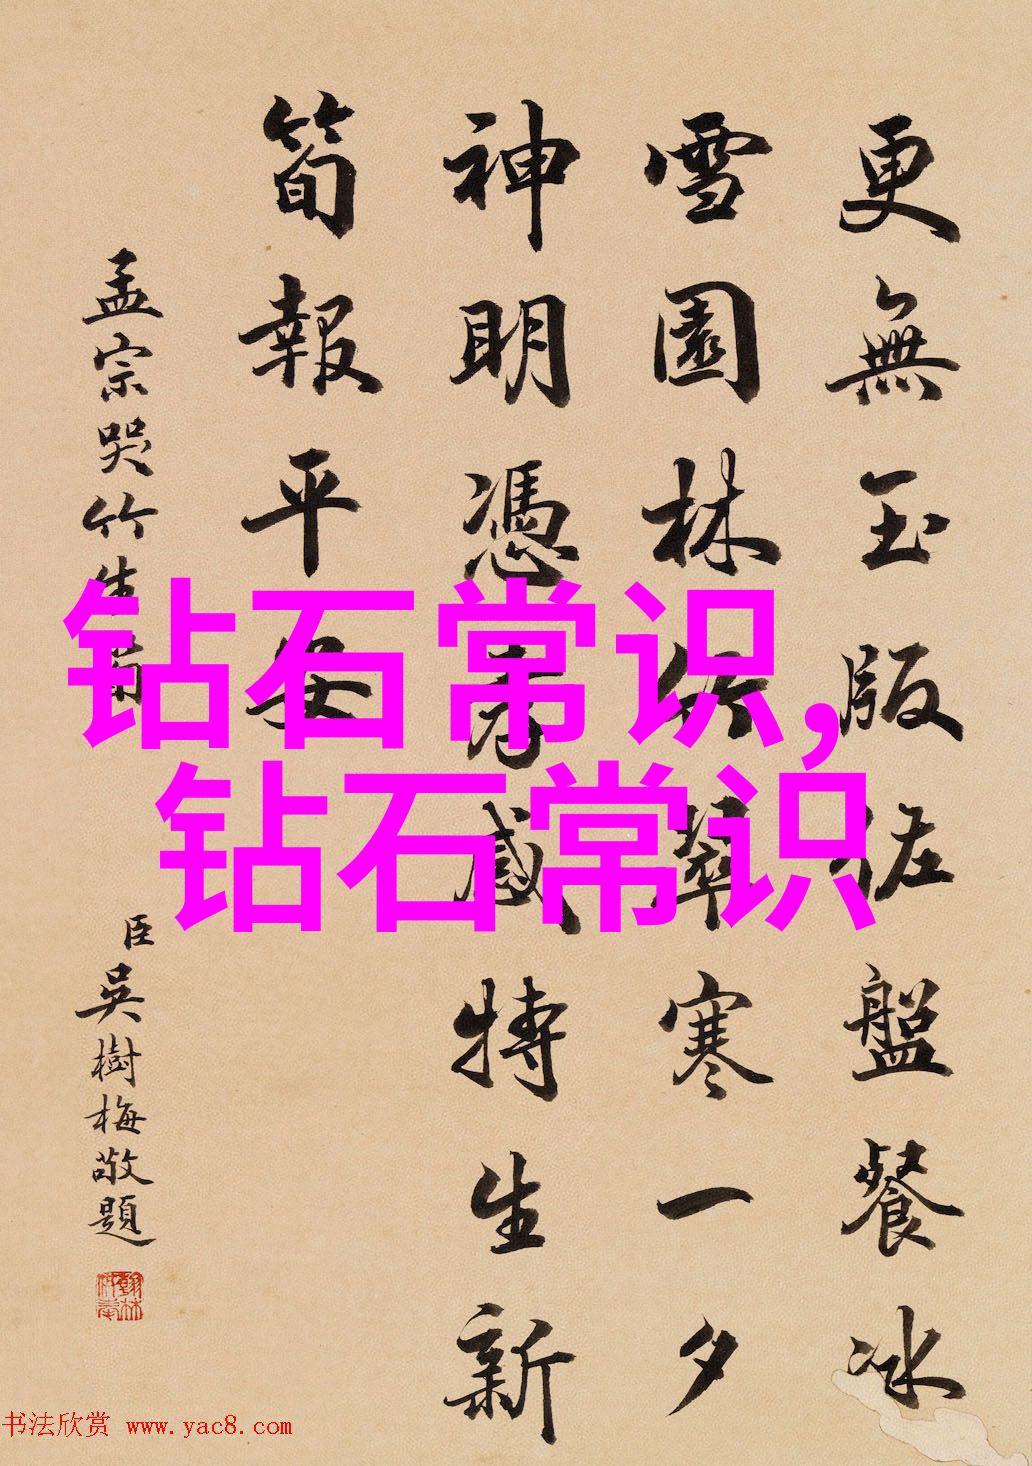 更無玉版佐盤餐冰
雪園林竹翠寒一夕
神明憑孝感特生新
筍報平安
孟宗哭竹生筍
臣吳樹梅敬題
钻石常识,
钻石常识
书法欣赏 www.yac8.com